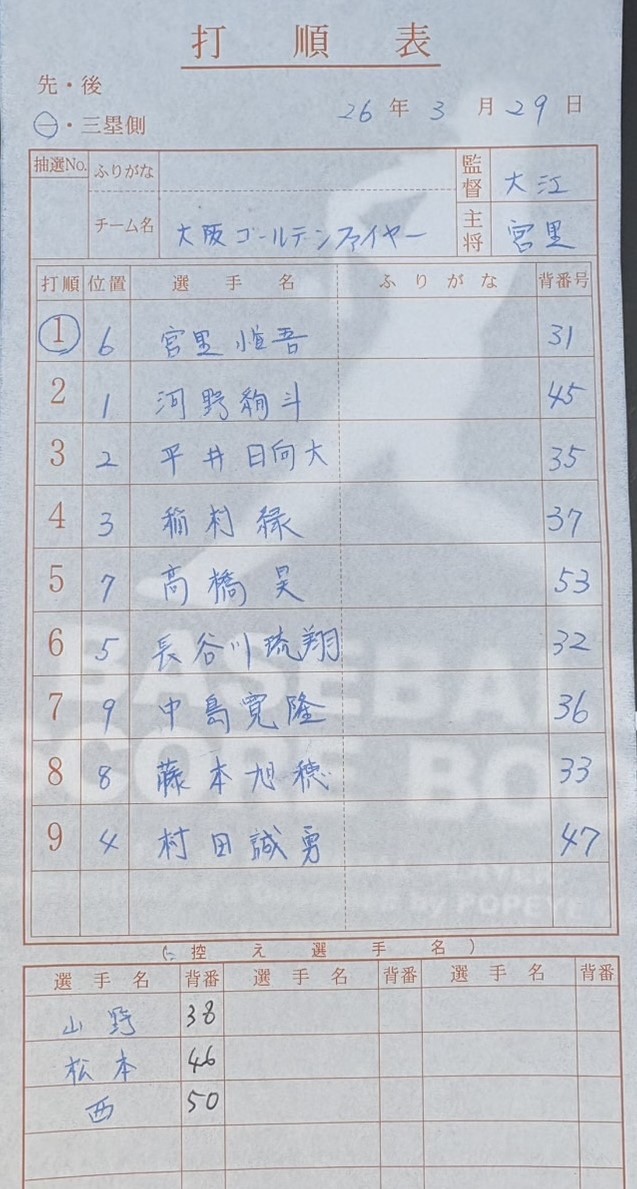 打順表
先・後
一・三塁側
26年3月29日
抽選No. ふりがな 監督 大江
チーム名 大阪ゴールデンファイヤー 主将 宮里
打順 位置 選手名 ふりがな 背番号
1 6 宮里恒吾 31
2 1 河野絢斗 45
3 2 平井日向大 35
4 3 稲村緑 37
5 7 高橋昊 53
6 5 長谷川琉翔 32
7 9 中島寛隆 36
8 8 藤本旭穂 33
9 4 村田誠勇 47
BASEBA
CORE BO
by POPEYE
控え選手名
選手名 背番 選手名 背番 選手名 背番
山野 38
松本 46
西 50